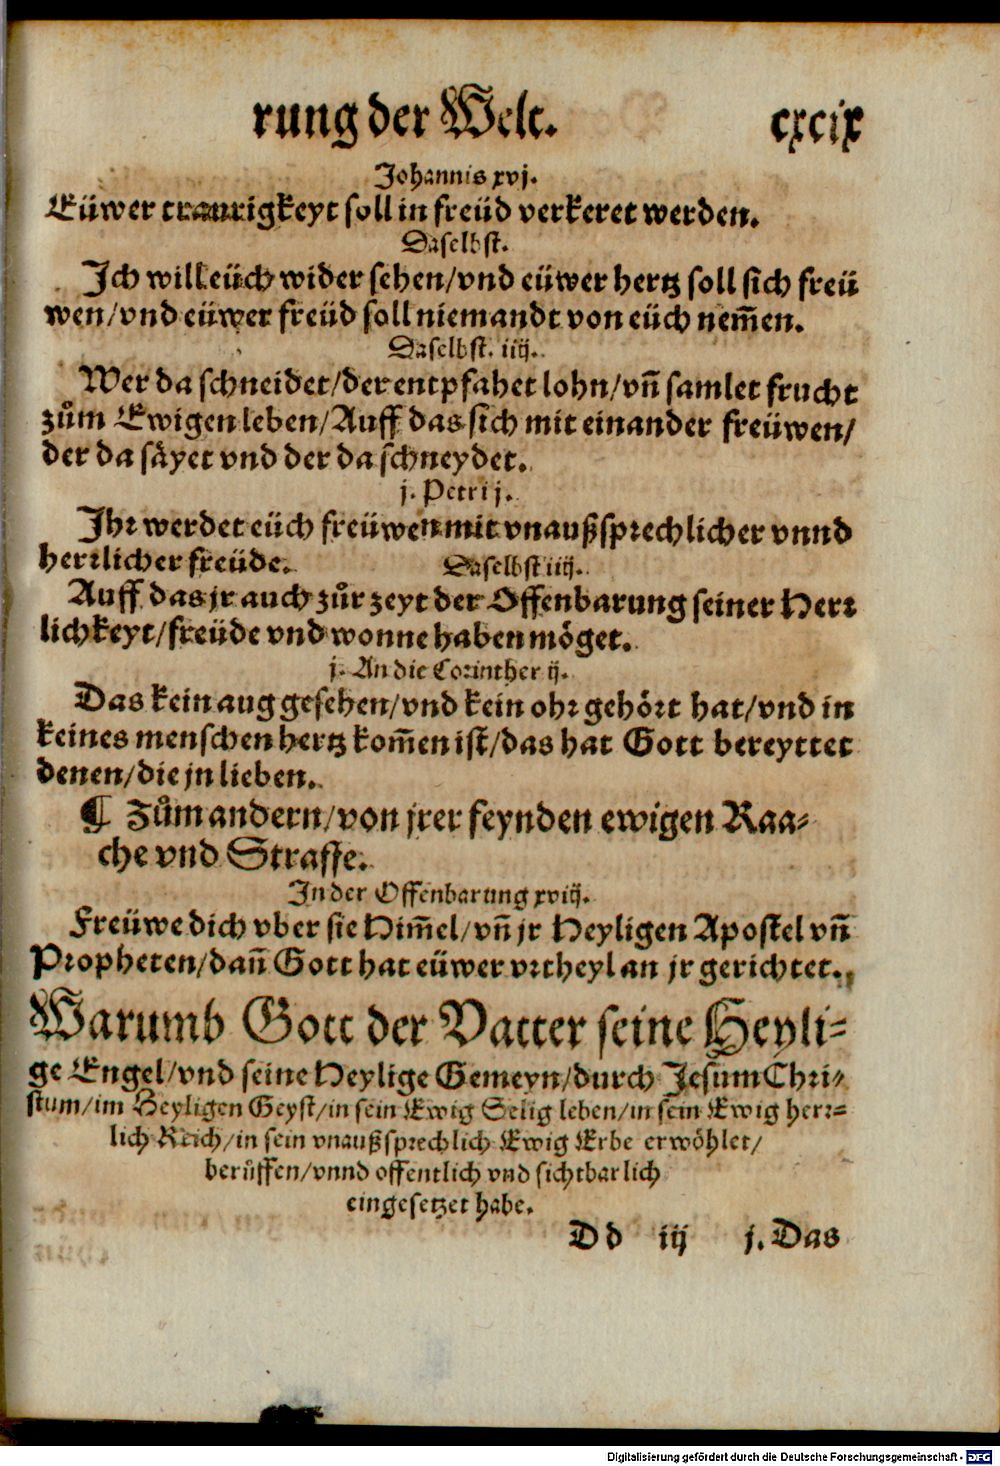 rung der Welt. cxcix
Johannis xvj.
Eüwer traurigkeyt soll in freüd verkeret werden.
Daselbst.
Jch will eüch wider sehen/vnd eüwer hertz soll sich freü
wen/vnd eüwer freüd soll niemandt von eüch nem̃en.
Daselbst. iiij.
Wer da schneidet/der entpfahet lohn/vñ samlet frucht
zům Ewigen leben/Auff das sich mit einander freüwen/
der da säyet vnd der da schneydet.
j. Petri j.
Jhr werdet eüch freüwen mit vnaußsprechlicher vnnd
herrlicher freüde. Daselbst iiij.
Auff das jr auch zůr zeyt der Offenbarung seiner Herr
lichkeyt/freüde vnd wonne haben möget.
j. An die Corinther ij.
Das kein aug gesehen/vnd kein ohr gehört hat/vnd in
keines menschen hertz kom̃en ist/das hat Gott bereyttet
denen/die jn lieben.
¶ Zům andern/von jrer feynden ewigen Raa-
che vnd Straffe.
In der Offenbarung xviij.
Freüwe dich vber sie Him̃el/vñ jr Heyligen Apostel vñ
Propheten/dañ Gott hat eüwer vrtheyl an jr gerichtet.
Warumb Gott der Vatter seine Heyli-
ge Engel/vnd seine Heylige Gemeyn/durch Jesum Chri-
stum/im Heyligen Geyst/in sein Ewig Selig leben/in sein Ewig herr-
lich Reich/in sein vnaußsprechlich Ewig Erbe erwöhlet/
berůffen/vnnd offentlich vnd sichtbarlich
eingesetzet habe.
D d iij j. Das
Digitalisierung gefördert durch die Deutsche Forschungsgemeinschaft - DFG